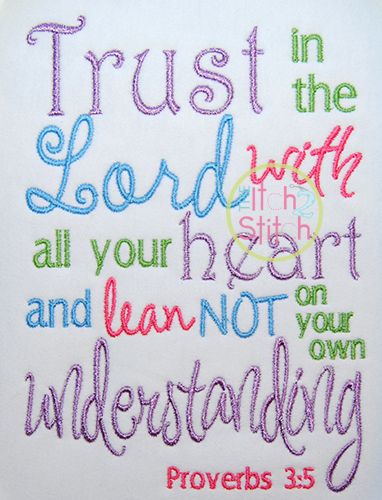 Trust in the
Lord with
all your heart
and lean NOT on your own
understanding
Proverbs 3:5
THE Itch 2 Stitch